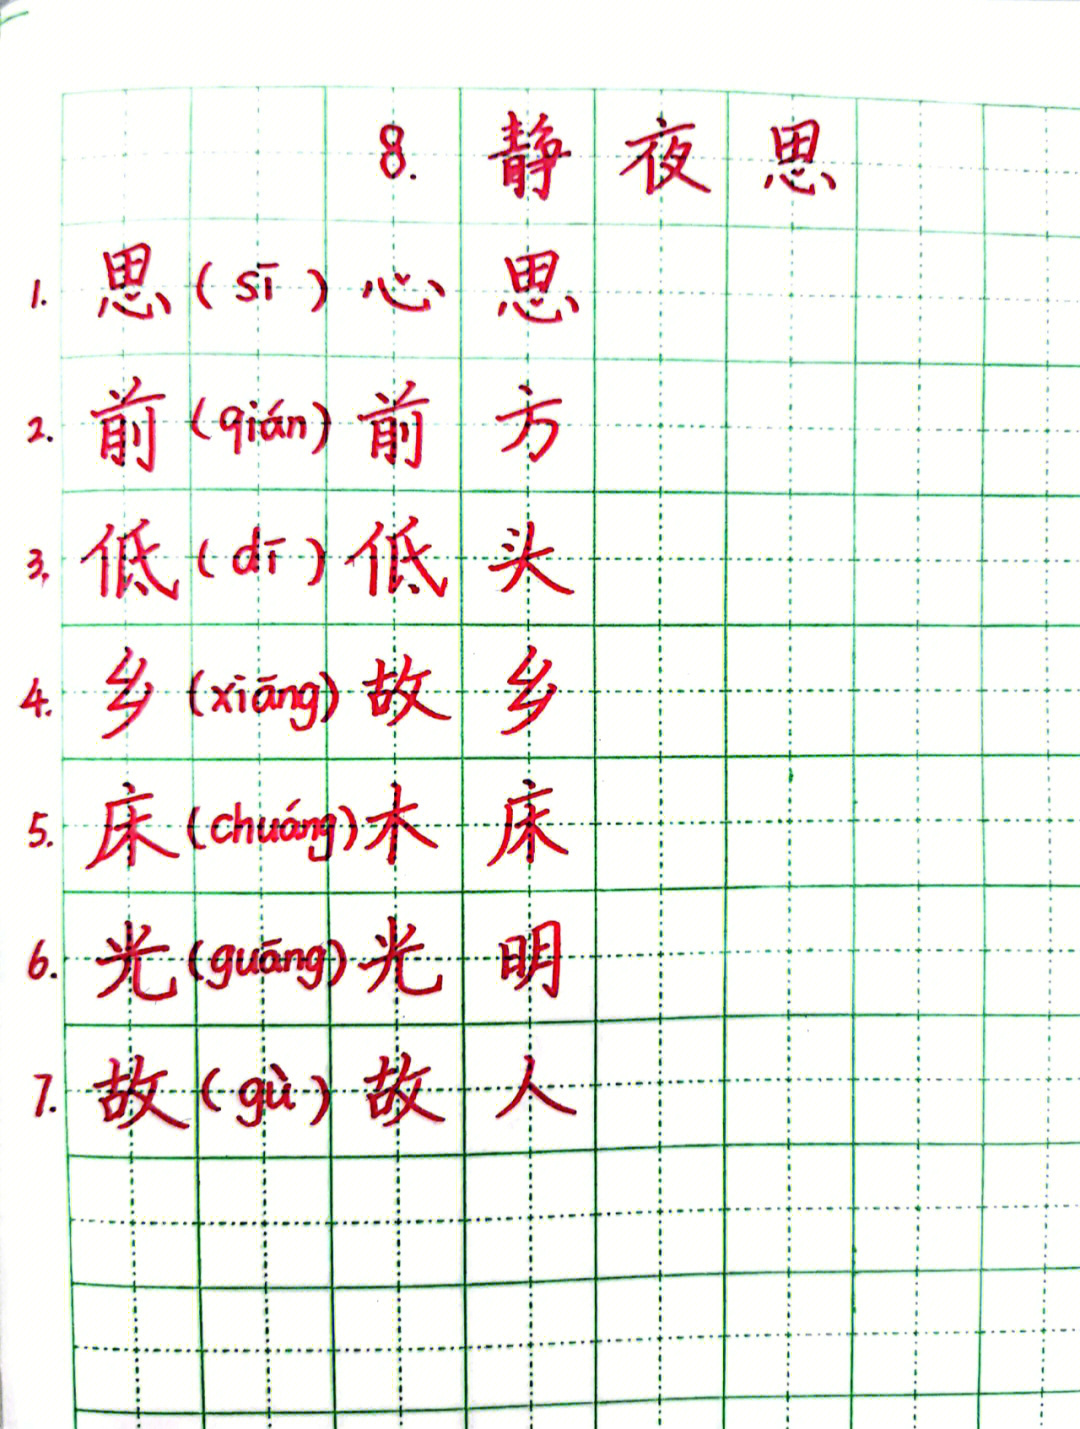 8. 静夜思
1. 思(sī)心思
2. 前(qián)前方
3. 低(dī)低头
4. 乡(xiāng)故乡
5. 床(chuáng)木床
6. 光(guāng)光明
7. 故(gù)故人